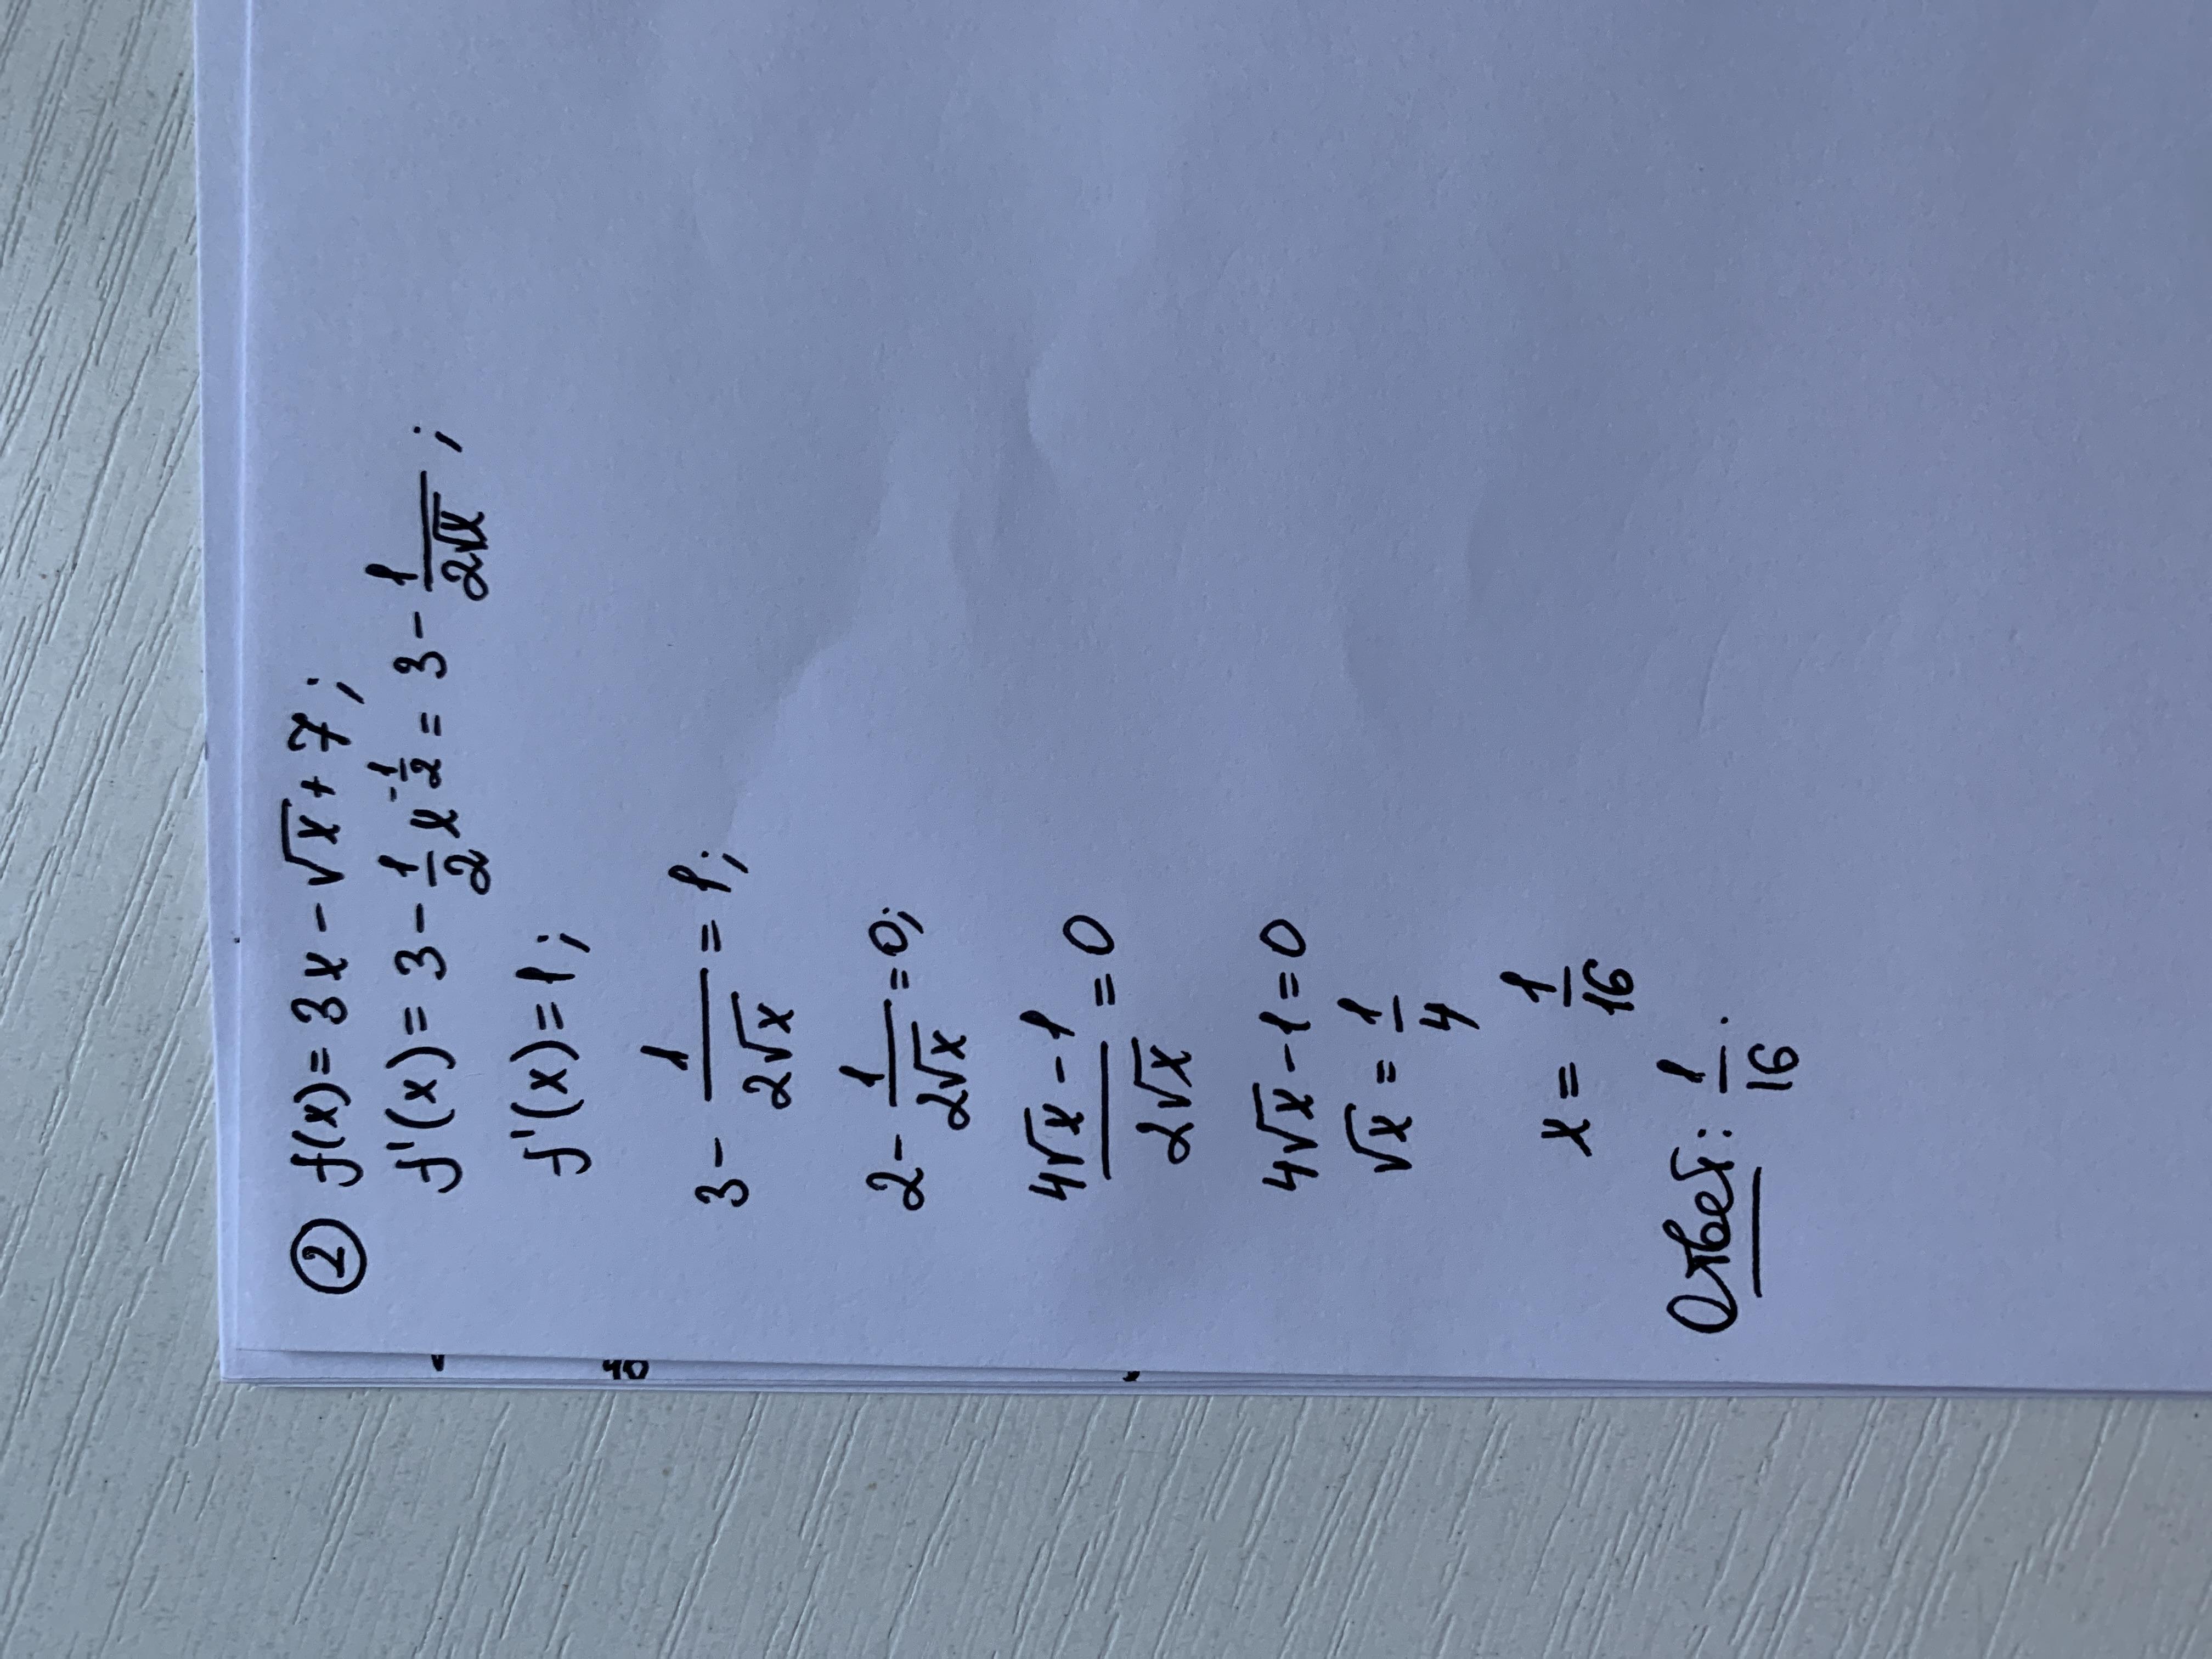 ② f(x) = 3x - √x + 7;
f'(x) = 3 - 1/2 x^(-1/2) = 3 - 1/(2√x);
f'(x) = 1;
3 - 1/(2√x) = 1;
2 - 1/(2√x) = 0;
(4√x - 1)/(2√x) = 0
4√x - 1 = 0
√x = 1/4
x = 1/16
Ответ: 1/16.